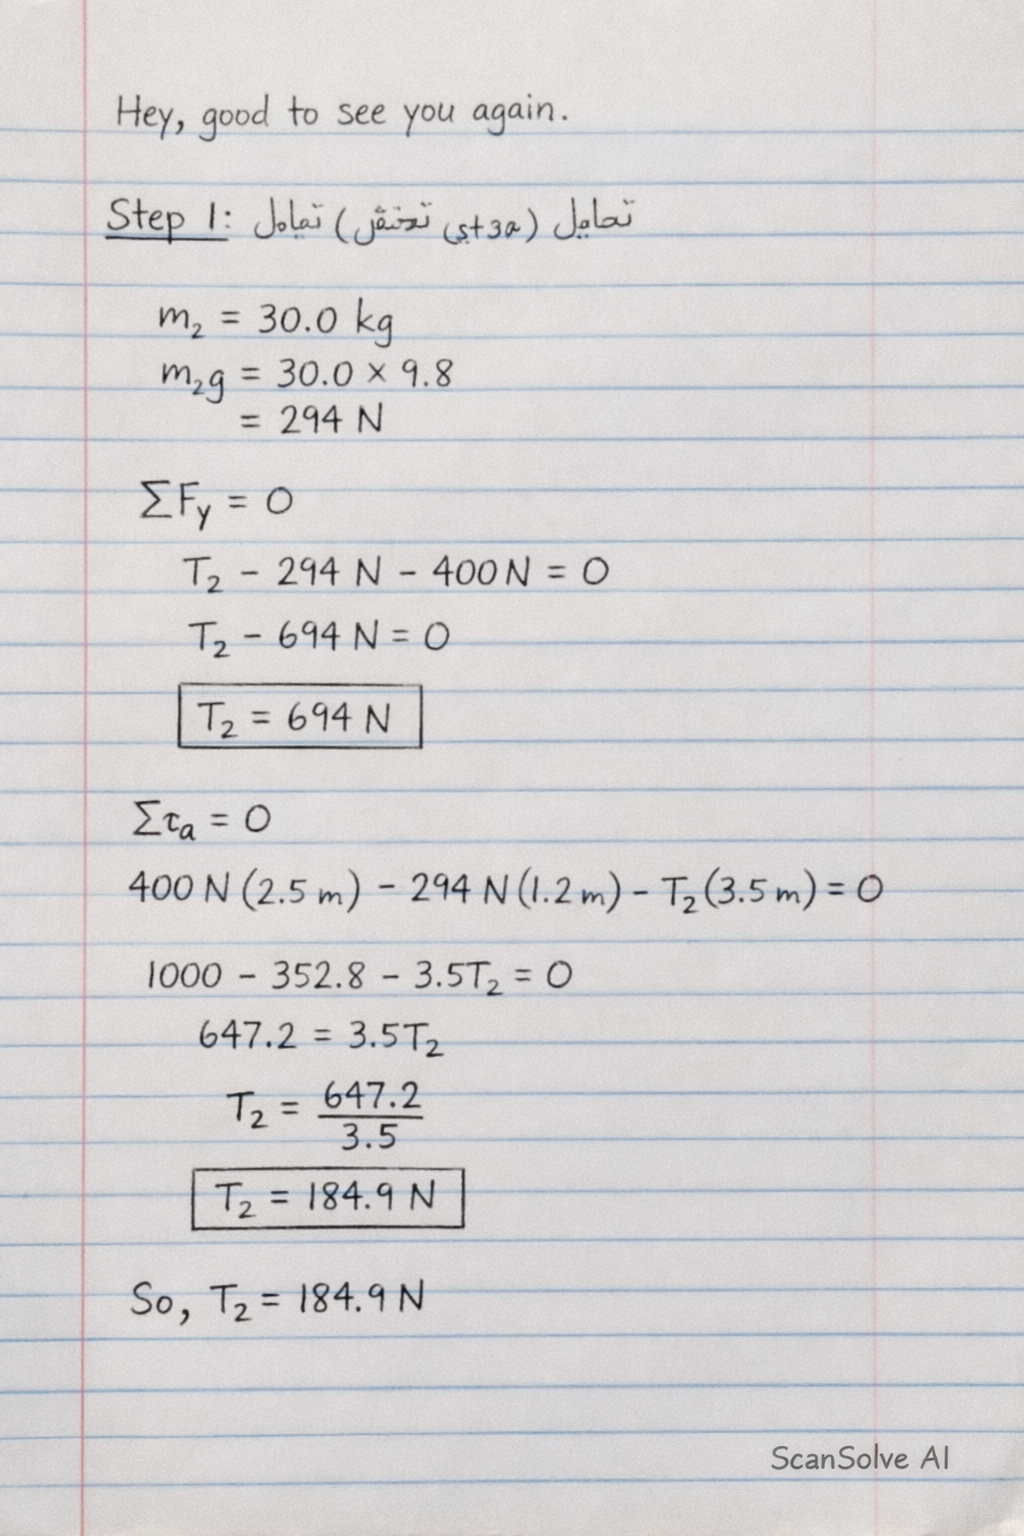 Hey, good to see you again.
Step 1:
m₂ = 30.0 kg
m₂g = 30.0 × 9.8
= 294 N
ΣFy = 0
T₂ − 294 N − 400 N = 0
T₂ − 694 N = 0
T₂ = 694 N
Στa = 0
400 N (2.5 m) − 294 N (1.2 m) − T₂ (3.5 m) = 0
1000 − 352.8 − 3.5T₂ = 0
647.2 = 3.5T₂
T₂ = 647.2 / 3.5
T₂ = 184.9 N
So, T₂ = 184.9 N
ScanSolve AI